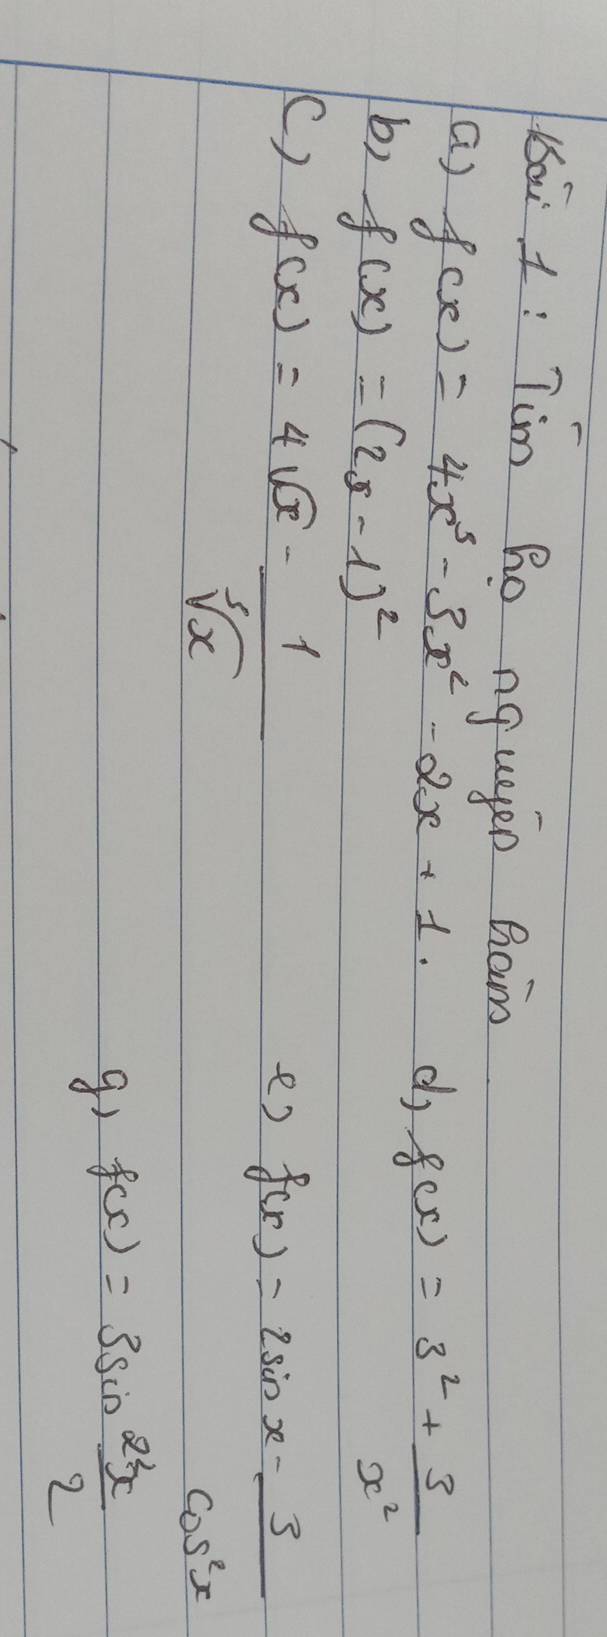 Bài 1: Tìm họ nguyên hàm
a) f(x) = 4x³ - 3x² - 2x + 1. d) f(x) = 3² + 3/x²
b) f(x) = (2x - 1)²
c) f(x) = 4√x - 1/³√x e) f(x) = 2sin x - 3/cos²x
g) f(x) = 3sin x/2